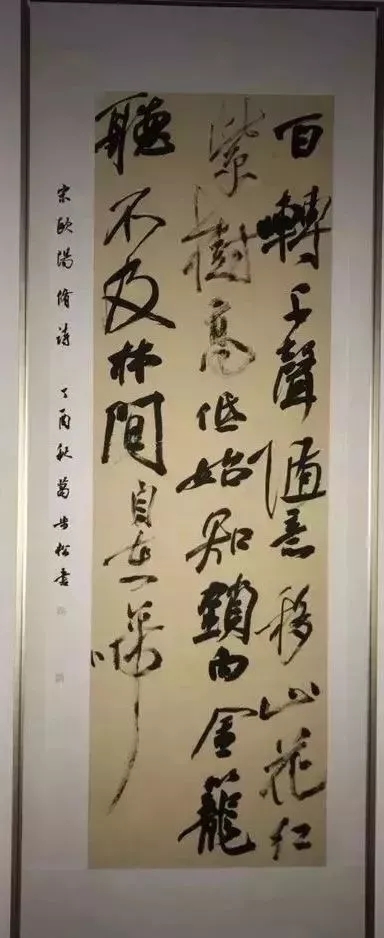 百轉千聲隨意移山花紅
紫樹高低始知鎖向金籠
聽不及林間自在啼
宋歐陽脩詩 丁酉秋葛松書